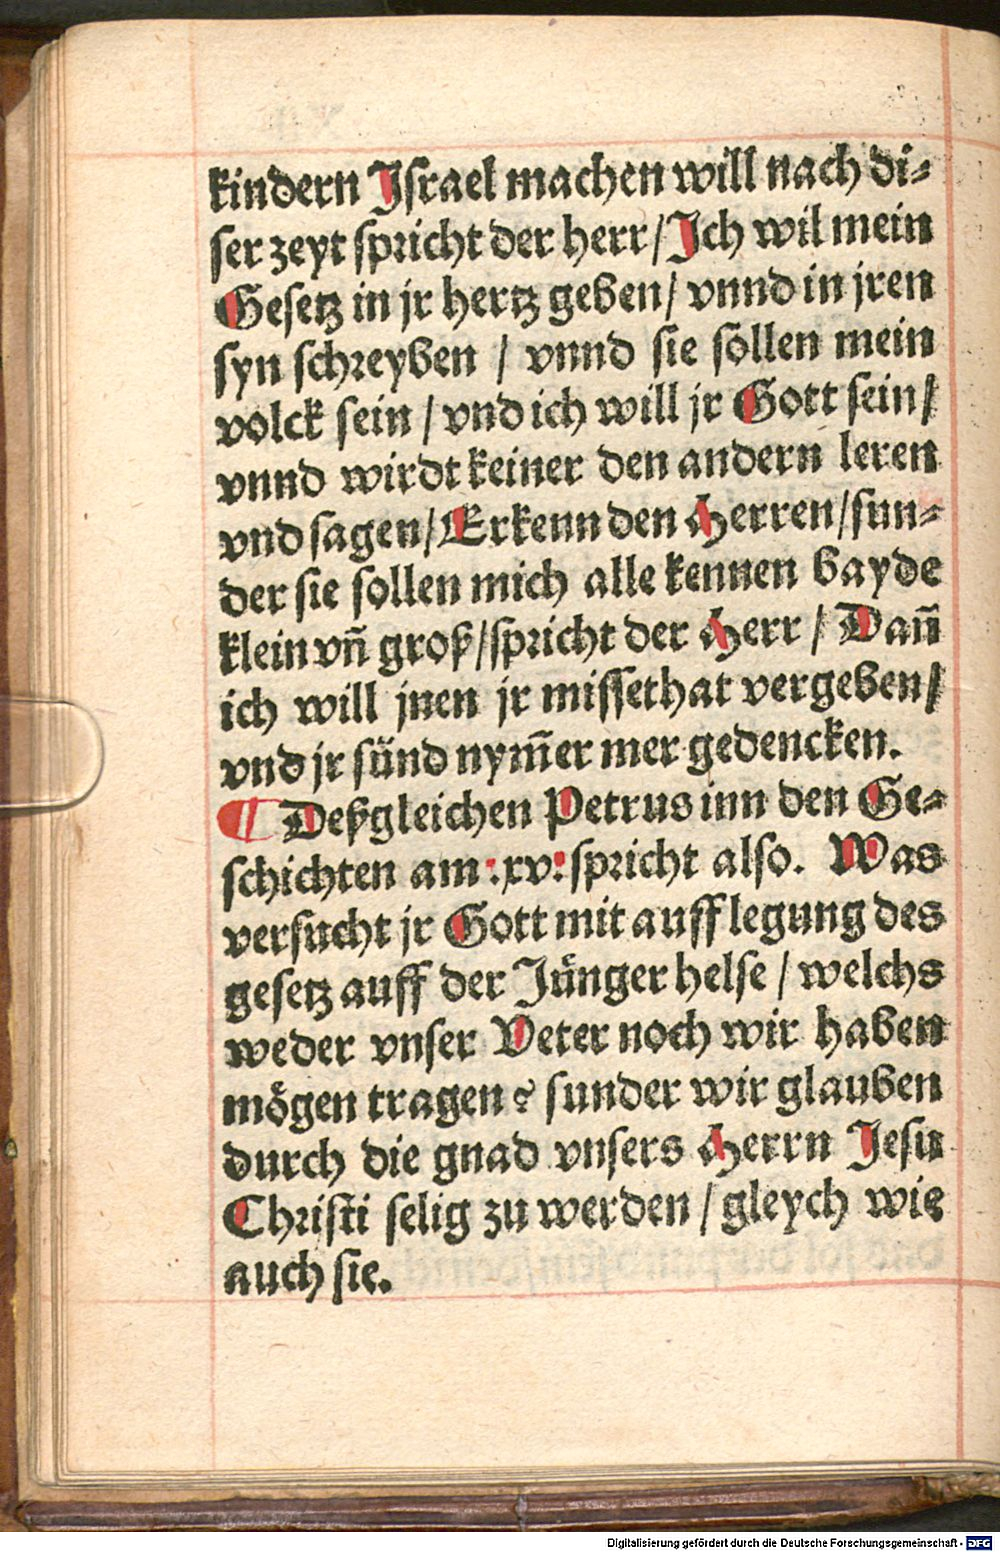 kindern Israel machen will nach di⸗
ser zeyt spricht der herr/ Ich wil mein
Gesetz in jr hertz geben/ vnnd in jren
syn schreyben / vnnd sie sollen mein
volck sein / vnd ich will jr Gott sein/
vnnd wirdt keiner den andern leren
vnd sagen/ Erkenn den Herren/ sun⸗
der sie sollen mich alle kennen bayde
klein vñ groß/ spricht der Herr / Dañ
ich will jnen jr missethat vergeben/
vnd jr sünd nym̄er mer gedencken.
¶ Deßgleichen Petrus inn den Ge⸗
schichten am :xv: spricht also. Was
versucht jr Gott mit aufflegung des
gesetz auff der Jünger helse / welchs
weder vnser Veter noch wir haben
mögen tragen? sunder wir glauben
durch die gnad vnsers Herrn Jesu
Christi selig zu werden / gleych wie
auch sie.
Digitalisierung gefördert durch die Deutsche Forschungsgemeinschaft - DFG